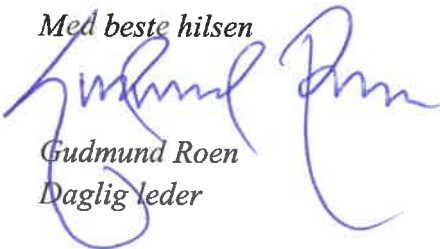 Med beste hilsen
Gudmund Roen
Gudmund Roen
Daglig leder